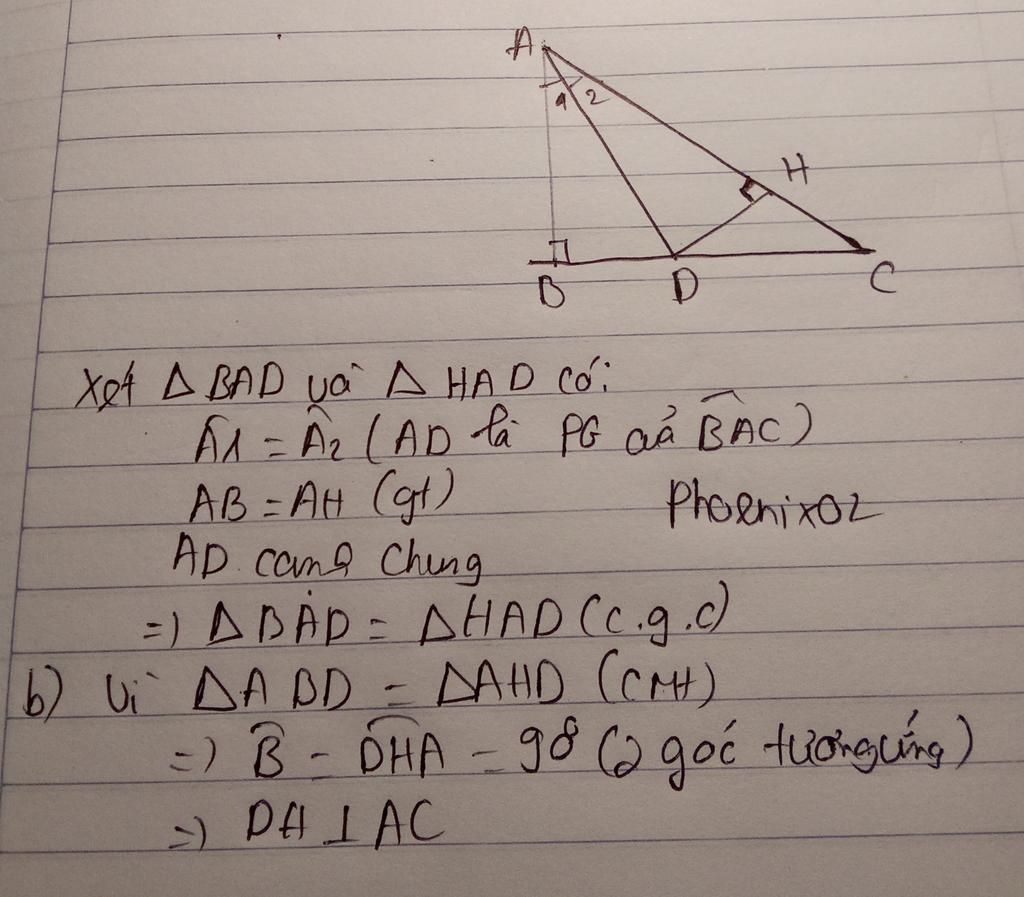 A
1 2
H
B D C
Xét Δ BAD và Δ HAD có:
Â1 = Â2 (AD là PG của B̂AC)
AB = AH (gt)
Phoenixoz
AD cạnh chung
=) Δ BAD = Δ HAD (c.g.c)
b) Vì Δ ABD = Δ AHD (CMt)
=) B̂ = D̂HA = 90° (2 góc tương ứng)
=) DH ⊥ AC